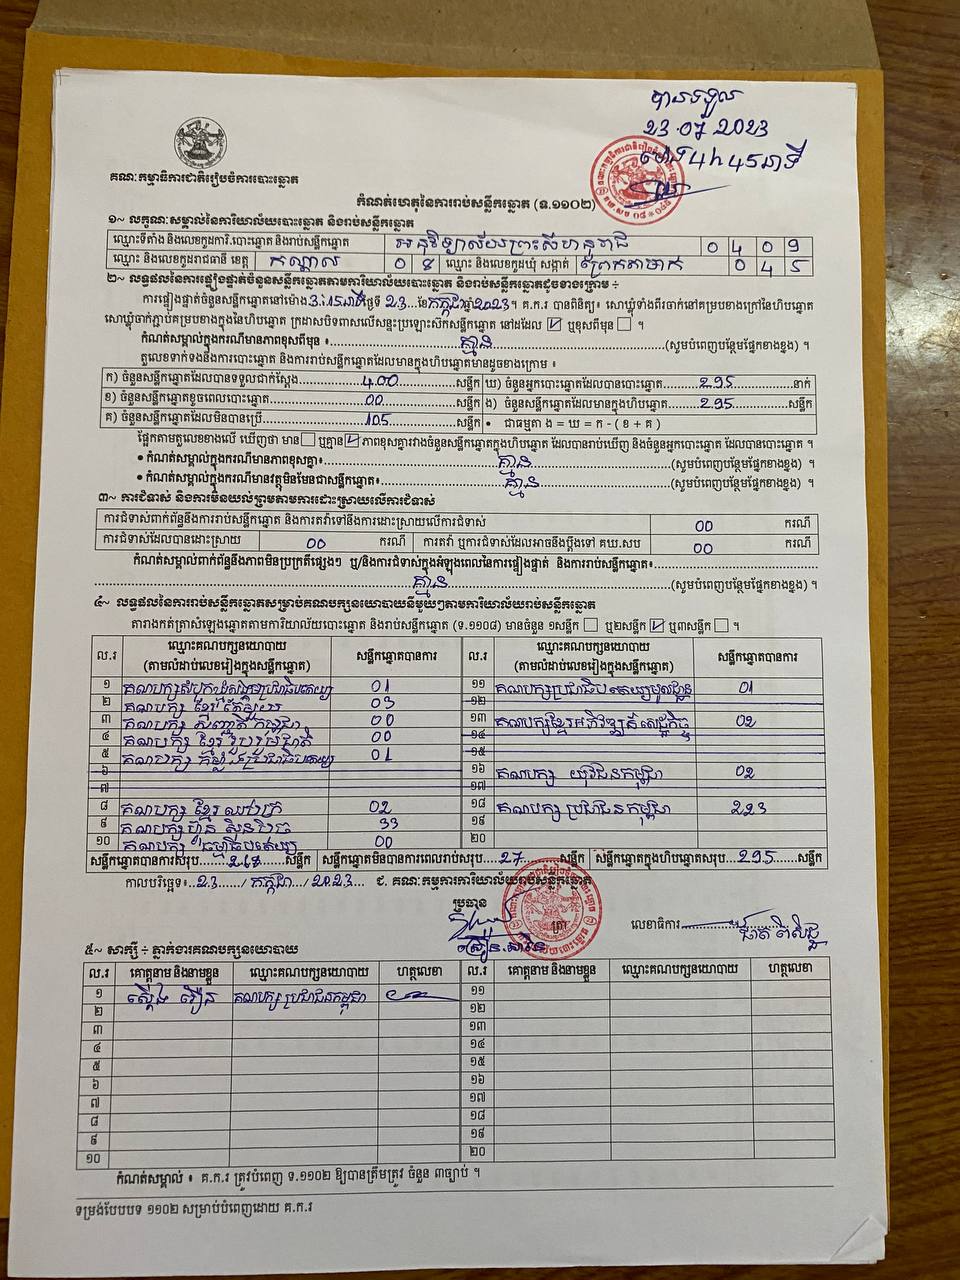 បានទទួល
23.07.2023
ម៉ោង 4h 45នាទី
គណៈកម្មាធិការជាតិរៀបចំការបោះឆ្នោត
កំណត់ហេតុនៃការរាប់សន្លឹកឆ្នោត (ទ.១១០២)
១~ លក្ខណៈសម្គាល់នៃការិយាល័យបោះឆ្នោត និងរាប់សន្លឹកឆ្នោត
ឈ្មោះទីតាំង និងលេខកូដការិ.បោះឆ្នោត និងរាប់សន្លឹកឆ្នោត អនុវិទ្យាល័យព្រះសីហនុរាជ 0 4 0 9
ឈ្មោះ និងលេខកូដរាជធានី ខេត្ត កណ្តាល 0 8 ឈ្មោះ និងលេខកូដឃុំ សង្កាត់ ព្រែកតាមាក់ 0 4 5
២~ លទ្ធផលនៃការផ្ទៀងផ្ទាត់ចំនួនសន្លឹកឆ្នោតតាមការិយាល័យបោះឆ្នោត និងរាប់សន្លឹកឆ្នោតដូចខាងក្រោម ÷
ការផ្ទៀងផ្ទាត់ចំនួនសន្លឹកឆ្នោតនៅម៉ោង 3:15នាទី ថ្ងៃទី 23 ខែ កក្កដា ឆ្នាំ2023។ គ.ក.រ បានពិនិត្យ ៖ សោឃ្លុំទាំងពីរចាក់នៅគម្របខាងក្រៅនៃហិបឆ្នោត
សោឃ្លុំចាក់ភ្ជាប់គម្របខាងក្នុងនៃហិបឆ្នោត ក្រដាសបិទពាសលើសន្ទះប្រឡោះសឹកសន្លឹកឆ្នោត នៅដដែល ☑ ឬខុសពីមុន ☐ ។
កំណត់សម្គាល់ក្នុងករណីមានភាពខុសពីមុន ៖ គ្មាន (សូមបំពេញបន្ថែមផ្នែកខាងខ្នង) ។
តួលេខទាក់ទងនឹងការបោះឆ្នោត និងការរាប់សន្លឹកឆ្នោតដែលមានក្នុងហិបឆ្នោតមានដូចខាងក្រោម ៖
ក) ចំនួនសន្លឹកឆ្នោតដែលបានទទួលជាក់ស្តែង 400 សន្លឹក ឃ) ចំនួនអ្នកបោះឆ្នោតដែលបានបោះឆ្នោត 295 នាក់
ខ) ចំនួនសន្លឹកឆ្នោតខូចពេលបោះឆ្នោត 00 សន្លឹក ង) ចំនួនសន្លឹកឆ្នោតដែលមានក្នុងហិបឆ្នោត 295 សន្លឹក
គ) ចំនួនសន្លឹកឆ្នោតដែលមិនបានប្រើ 105 សន្លឹក • ជាធម្មតា ង = ឃ = ក - ( ខ + គ )
ផ្អែកតាមតួលេខខាងលើ ឃើញថា មាន ☐ ឬគ្មាន ☑ ភាពខុសគ្នារវាងចំនួនសន្លឹកឆ្នោតក្នុងហិបឆ្នោត ដែលបានរាប់ឃើញ និងចំនួនអ្នកបោះឆ្នោត ដែលបានបោះឆ្នោត ។
• កំណត់សម្គាល់ក្នុងករណីមានភាពខុសគ្នា៖ គ្មាន (សូមបំពេញបន្ថែមផ្នែកខាងខ្នង) ។
• កំណត់សម្គាល់ក្នុងករណីមានវត្ថុមិនមែនជាសន្លឹកឆ្នោត៖ គ្មាន (សូមបំពេញបន្ថែមផ្នែកខាងខ្នង) ។
៣~ ការជំទាស់ និងការមិនយល់ព្រមតាមការដោះស្រាយលើការជំទាស់
ការជំទាស់ពាក់ព័ន្ធនឹងការរាប់សន្លឹកឆ្នោត និងការតវ៉ាទៅនឹងការដោះស្រាយលើការជំទាស់ 00 ករណី
ការជំទាស់ដែលបានដោះស្រាយ 00 ករណី ការតវ៉ា ឬជំទាស់ដែលអាចនឹងប្តឹងទៅ គឃ.សប 00 ករណី
កំណត់សម្គាល់ពាក់ព័ន្ធនឹងភាពមិនប្រក្រតីផ្សេងៗ ឬ/និងការជំទាស់ក្នុងអំឡុងពេលនៃការផ្ទៀងផ្ទាត់ និងការរាប់សន្លឹកឆ្នោត៖
គ្មាន (សូមបំពេញបន្ថែមផ្នែកខាងខ្នង) ។
៤~ លទ្ធផលនៃការរាប់សន្លឹកឆ្នោតសម្រាប់គណបក្សនយោបាយនីមួយៗតាមការិយាល័យរាប់សន្លឹកឆ្នោត
តារាងកត់ត្រាសំឡេងឆ្នោតតាមការិយាល័យបោះឆ្នោត និងរាប់សន្លឹកឆ្នោត (ទ.១១០៨) មានចំនួន ១សន្លឹក ☐ ឬ២សន្លឹក ☑ ឬ៣សន្លឹក ☐ ។
ល.រ ឈ្មោះគណបក្សនយោបាយ (តាមលំដាប់លេខរៀងក្នុងសន្លឹកឆ្នោត) សន្លឹកឆ្នោតបានការ ល.រ ឈ្មោះគណបក្សនយោបាយ (តាមលំដាប់លេខរៀងក្នុងសន្លឹកឆ្នោត) សន្លឹកឆ្នោតបានការ
១ គណបក្សសំបុកឃ្មុំសង្គមប្រជាធិបតេយ្យ 01 ១១ គណបក្សប្រជាធិបតេយ្យមូលដ្ឋាន 01
២ គណបក្ស ខ្មែរ តែមួយ 03 ១២
៣ គណបក្ស សញ្ជាតិ កម្ពុជា 00 ១៣ គណបក្សខ្មែរអភិវឌ្ឍន៍សេដ្ឋកិច្ច 02
៤ គណបក្ស ខ្មែរ រួបរួមជាតិ 00 ១៤
៥ គណបក្ស កម្លាំងប្រជាធិបតេយ្យ 01 ១៥
៦ ១៦ គណបក្ស យុវជនកម្ពុជា 02
៧ ១៧
៨ គណបក្ស ខ្មែរ ឈប់ក្រ 02 ១៨ គណបក្ស ប្រជាជនកម្ពុជា 223
៩ គណបក្សហ៊្វុនស៊ិនប៉ិច 33 ១៩
១០ គណបក្ស ធម្មាធិបតេយ្យ 00 ២០
សន្លឹកឆ្នោតបានការសរុប 268 សន្លឹក សន្លឹកឆ្នោតមិនបានការពេលរាប់សរុប 27 សន្លឹក សន្លឹកឆ្នោតក្នុងហិបឆ្នោតសរុប 295 សន្លឹក
កាលបរិច្ឆេទ៖ 23 / កក្កដា / 2023 ជ. គណៈកម្មការការិយាល័យរាប់សន្លឹកឆ្នោត
ប្រធាន
ត្រា លេខាធិការ
៥~ សាក្សី ÷ ភ្នាក់ងារគណបក្សនយោបាយ
ល.រ គោត្តនាម និងនាមខ្លួន ឈ្មោះគណបក្សនយោបាយ ហត្ថលេខា ល.រ គោត្តនាម និងនាមខ្លួន ឈ្មោះគណបក្សនយោបាយ ហត្ថលេខា
១ ស្តើង វឿន គណបក្ស ប្រជាជនកម្ពុជា ១១
២ ១២
៣ ១៣
៤ ១៤
៥ ១៥
៦ ១៦
៧ ១៧
៨ ១៨
៩ ១៩
១០ ២០
កំណត់សម្គាល់ ៖ គ.ក.រ ត្រូវបំពេញ ទ.១១០២ ឱ្យបានត្រឹមត្រូវ ចំនួន ៣ច្បាប់ ។
ទម្រង់បែបបទ ១១០២ សម្រាប់បំពេញដោយ គ.ក.រ